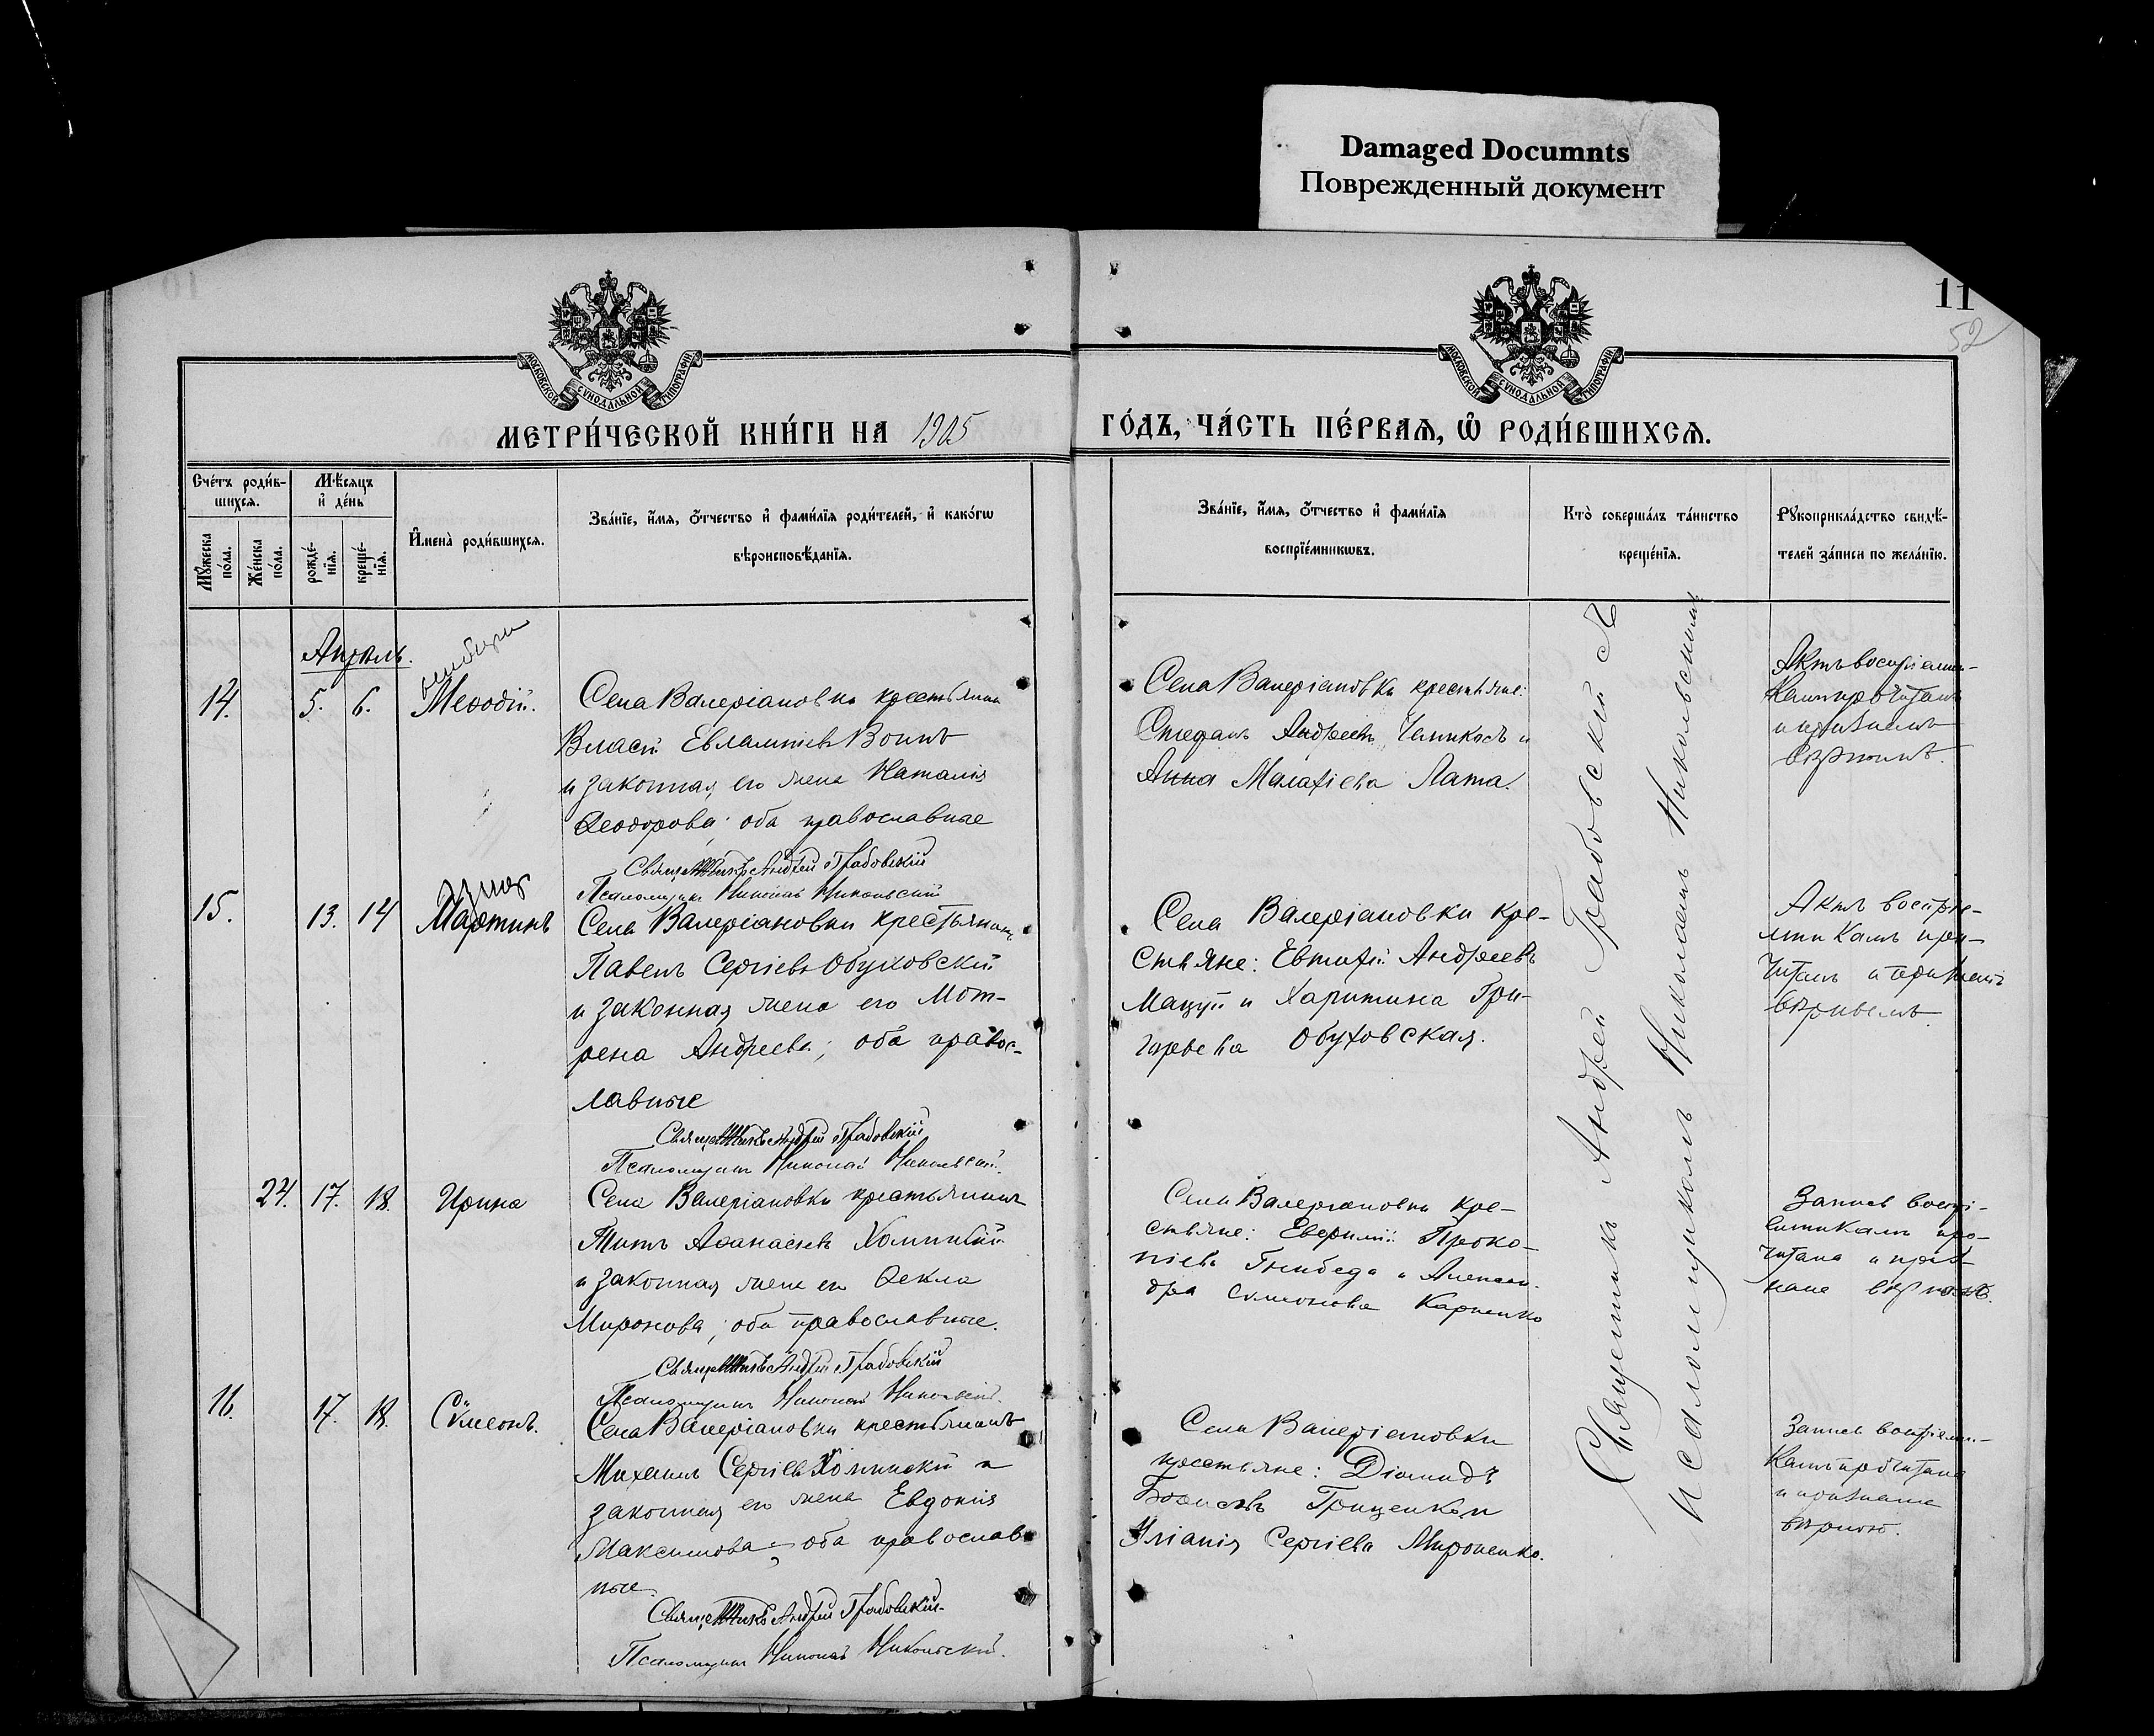 Damaged Documnts
Поврежденный документ
11
52
МОСКОВСКОЙ СѴНОДАЛЬНОЙ ТИПОГРАФІИ
МОСКОВСКОЙ СѴНОДАЛЬНОЙ ТИПОГРАФІИ
МЕТРИ́ЧЕСКОЙ КНИ́ГИ НА 1905
ГО́ДЪ, ЧА́СТЬ ПЕ́РВАЯ, Ѡ РОДИ́ВШИХСЯ.
Сче́тъ роди́в-
шихся.
Мѣ́сяцъ
и҆ де́нь
Мꙋ́жеска
по́ла.
Же́нска
по́ла.
рожде́-
нїя.
креще́-
нїя.
И҆мена̀ роди́вшихся.
Зва́нїе, и҆́мя, ѻ҆́тчество и҆ фами́лїя роди́телей, и҆ како́гѡ
вѣроисповѣ́данїя.
Зва́нїе, и҆́мя, ѻ҆́тчество и҆ фами́лїя
воспрїе́мникѡвъ.
Кто̀ соверша́лъ та́инство
креще́нїя.
Рꙋкоприкла́дство свидѣ́-
телей за́писи по жела́нїю.
Апрѣль.
14.
5.
6.
Меѳодій.
Села Валеріановки крестьянинъ
Власій Евлампіевъ Воинъ
и законная его жена Наталія
Ѳеодорова; оба православные
Священникъ Андрей Грабовскій
Псаломщикъ Николай Никольскій
Села Валеріановки крестьяне:
Стефанъ Андреевъ и
Анна Малахіева Лата.
Актъ воспріемни-
камъ прочитанъ
и признанъ
вѣрнымъ.
15.
13.
14
Мартинъ
Села Валеріановки крестьянинъ
Павелъ Сергіевъ Обуховскій
и законная жена его Мот-
рена Андреева; оба правос-
лавные
Священникъ Андрей Грабовскій
Псаломщикъ Николай Никольскій.
Села Валеріановки кре-
стьяне: Евтихій Андреевъ
Мацуй и Харитина Гри-
горьева Обуховская.
Актъ воспріе-
мникамъ про-
читанъ и признанъ
вѣрнымъ
24.
17.
18.
Ирина
Села Валеріановки крестьянинъ
Титъ Аѳанасіевъ
и законная жена его Ѳекла
Миронова; оба православные.
Священникъ Андрей Грабовскій
Псаломщикъ Николай Никольскій.
Села Валеріановки кре-
стьяне: Евфимій Проко-
піевъ и Алексан-
дра Симонова Карпенко
Запись воспрі-
емникамъ про-
читана и приз-
нана вѣрной.
16.
17.
18.
Симеонъ.
Села Валеріановки крестьянинъ
Михаилъ Сергіевъ и
законная его жена Евдокія
Максимова; оба православ-
ные.
Священникъ Андрей Грабовскій
Псаломщикъ Николай Никольскій.
Села Валеріановки
крестьяне: Діомидъ
Борисовъ Грищенко и
Уліанія Сергіева Мироненко.
Запись воспріемни-
камъ прочитана
и признана
вѣрной.
Священникъ Андрей Грабовскій съ
псаломщикомъ Николаемъ Никольскимъ